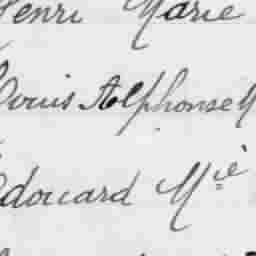 Henri Marie
Louis Alphonse M
Edouard Mie